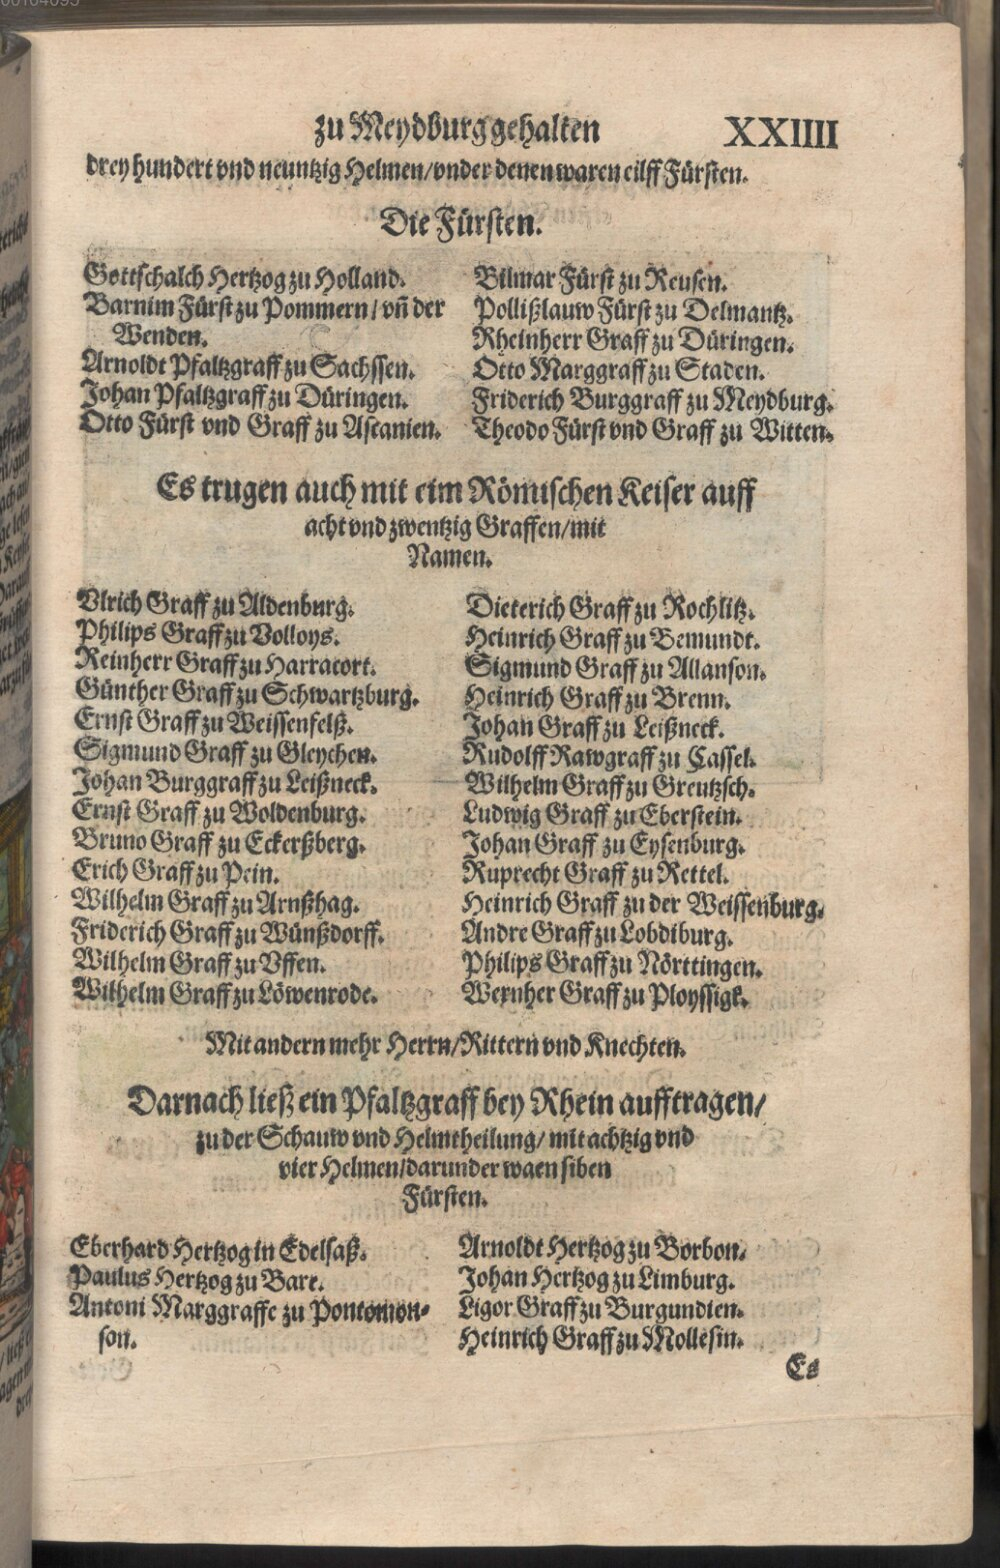 zu Meydburg gehalten XXIIII
drey hundert vnd neuntzig Helmen/vnder denen waren eilff Fürsten.
Die Fürsten.
Gottschalch Hertzog zu Holland.
Barnim Fürst zu Pommern/ vñ der
Wenden.
Arnoldt Pfaltzgraff zu Sachssen.
Johan Pfaltzgraff zu Düringen.
Otto Fürst vnd Graff zu Ascanien.
Bilmar Fürst zu Reusen.
Pollißlauw Fürst zu Delmantz.
Rheinherr Graff zu Düringen.
Otto Marggraff zu Staden.
Friderich Burggraff zu Meydburg.
Theodo Fürst vnd Graff zu Witten.
Es trugen auch mit eim Römischen Keiser auff
acht vnd zwentzig Graffen/mit
Namen.
Vlrich Graff zu Aldenburg.
Philips Graff zu Volloys.
Reinherr Graff zu Harracort.
Günther Graff zu Schwartzburg.
Ernst Graff zu Weissenfelß.
Sigmund Graff zu Gleychen.
Johan Burggraff zu Leißneck.
Ernst Graff zu Woldenburg.
Bruno Graff zu Eckerßberg.
Erich Graff zu Pein.
Wilhelm Graff zu Arnßhag.
Friderich Graff zu Wünßdorff.
Wilhelm Graff zu Vffen.
Wilhelm Graff zu Löwenrode.
Dieterich Graff zu Rochlitz.
Heinrich Graff zu Bemundt.
Sigmund Graff zu Allanson.
Heinrich Graff zu Brenn.
Johan Graff zu Leißneck.
Rudolff Rawgraff zu Cassel.
Wilhelm Graff zu Greutzsch.
Ludwig Graff zu Eberstein.
Johan Graff zu Eysenburg.
Ruprecht Graff zu Rettel.
Heinrich Graff zu der Weissenburg.
Andre Graff zu Lobdiburg.
Philips Graff zu Nörttingen.
Wernher Graff zu Ployssigk.
Mit andern mehr Herrn/Rittern vnd Knechten.
Darnach ließ ein Pfaltzgraff bey Rhein aufftragen/
zu der Schauw vnd Helmtheilung/ mit achtzig vnd
vier Helmen/darunder waen siben
Fürsten.
Eberhard Hertzog in Edelsaß.
Paulus Hertzog zu Bare.
Antoni Marggraffe zu Pontomon-
son.
Arnoldt Hertzog zu Borbon.
Johan Hertzog zu Limburg.
Ligor Graff zu Burgundien.
Heinrich Graff zu Mollesin.
Es